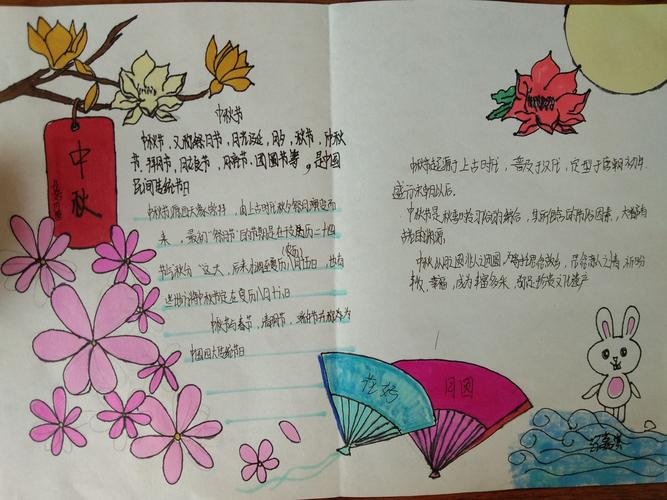 中秋
中秋节
中秋节，又称祭月节、月光诞、月夕、秋节、仲秋
节、拜月节、月娘节、月亮节、团圆节等，是中国
民间传统节日
中秋节源自天象崇拜，由上古时代秋夕祭月演变而
来，最初“祭月节”的节期是在干支历二十四
节气秋分 这天，后来才调至夏历八月十五日，也有
些地方将中秋节定在夏历八月十六日
中秋节与春节、清明节、端午节并称为
中国四大传统节日
中秋节起源于上古时代，普及于汉代，定型于唐朝初年
盛行宋朝以后。
中秋节是秋季时令习俗的综合，其所包含的节俗因素，大都有
古老的渊源。
中秋以月之圆兆人之团圆
为寄托思念故乡，思念亲人之情，祈盼
丰收、幸福，成为丰富多彩、弥足珍贵文化遗产
花好
月圆